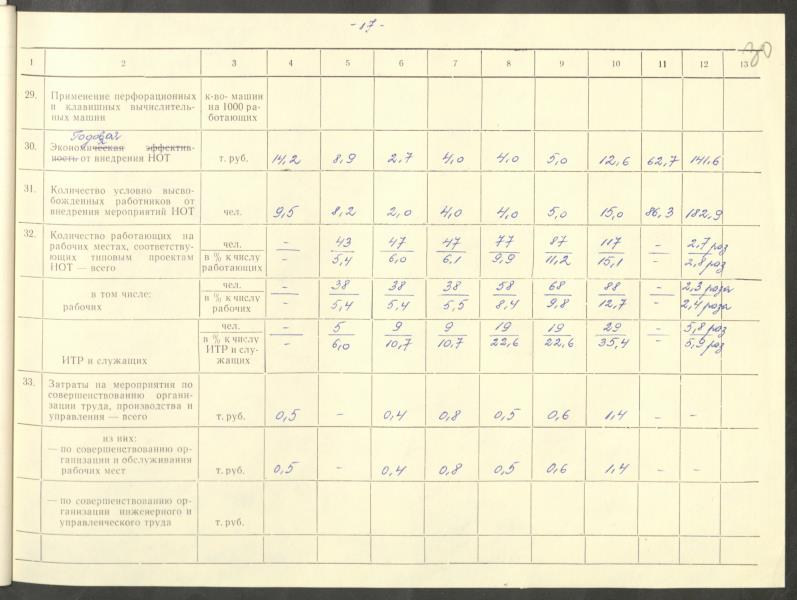 - 17 -
30
1 2 3 4 5 6 7 8 9 10 11 12 13
29. Применение перфорационных к-во- машин
и клавишных вычислитель- на 1000 ра-
ных машин ботающих
Годовая
30. Экономическая эффектив-
ность от внедрения НОТ т. руб. 14,2 8,9 2,7 4,0 4,0 5,0 12,6 62,7 141,6
31. Количество условно высво-
божденных работников от
внедрения мероприятий НОТ чел. 9,5 8,2 2,0 4,0 4,0 5,0 15,0 86,3 182,9
32. Количество работающих на
рабочих местах, соответству- чел. - 43 47 47 77 87 117 - 2,7 раз
ющих типовым проектам в % к числу - 5,4 6,0 6,1 9,9 11,2 15,1 - 2,8 раз
НОТ — всего работающих
в том числе: чел. - 38 38 38 58 68 88 - 2,3 раза
рабочих в % к числу - 5,4 5,4 5,5 8,4 9,8 12,7 - 2,4 раза
рабочих
чел. - 5 9 9 19 19 29 - 5,8 раз
в % к числу - 6,0 10,7 10,7 22,6 22,6 35,4 - 5,9 раз
ИТР и слу-
ИТР и служащих жащих
33. Затраты на мероприятия по
совершенствованию органи-
зации труда, производства и
управления — всего т. руб. 0,5 - 0,4 0,8 0,5 0,6 1,4 - -
из них:
— по совершенствованию ор-
ганизации и обслуживания
рабочих мест т. руб. 0,5 - 0,4 0,8 0,5 0,6 1,4 - -
— по совершенствованию ор-
ганизации инженерного и
управленческого труда т. руб.